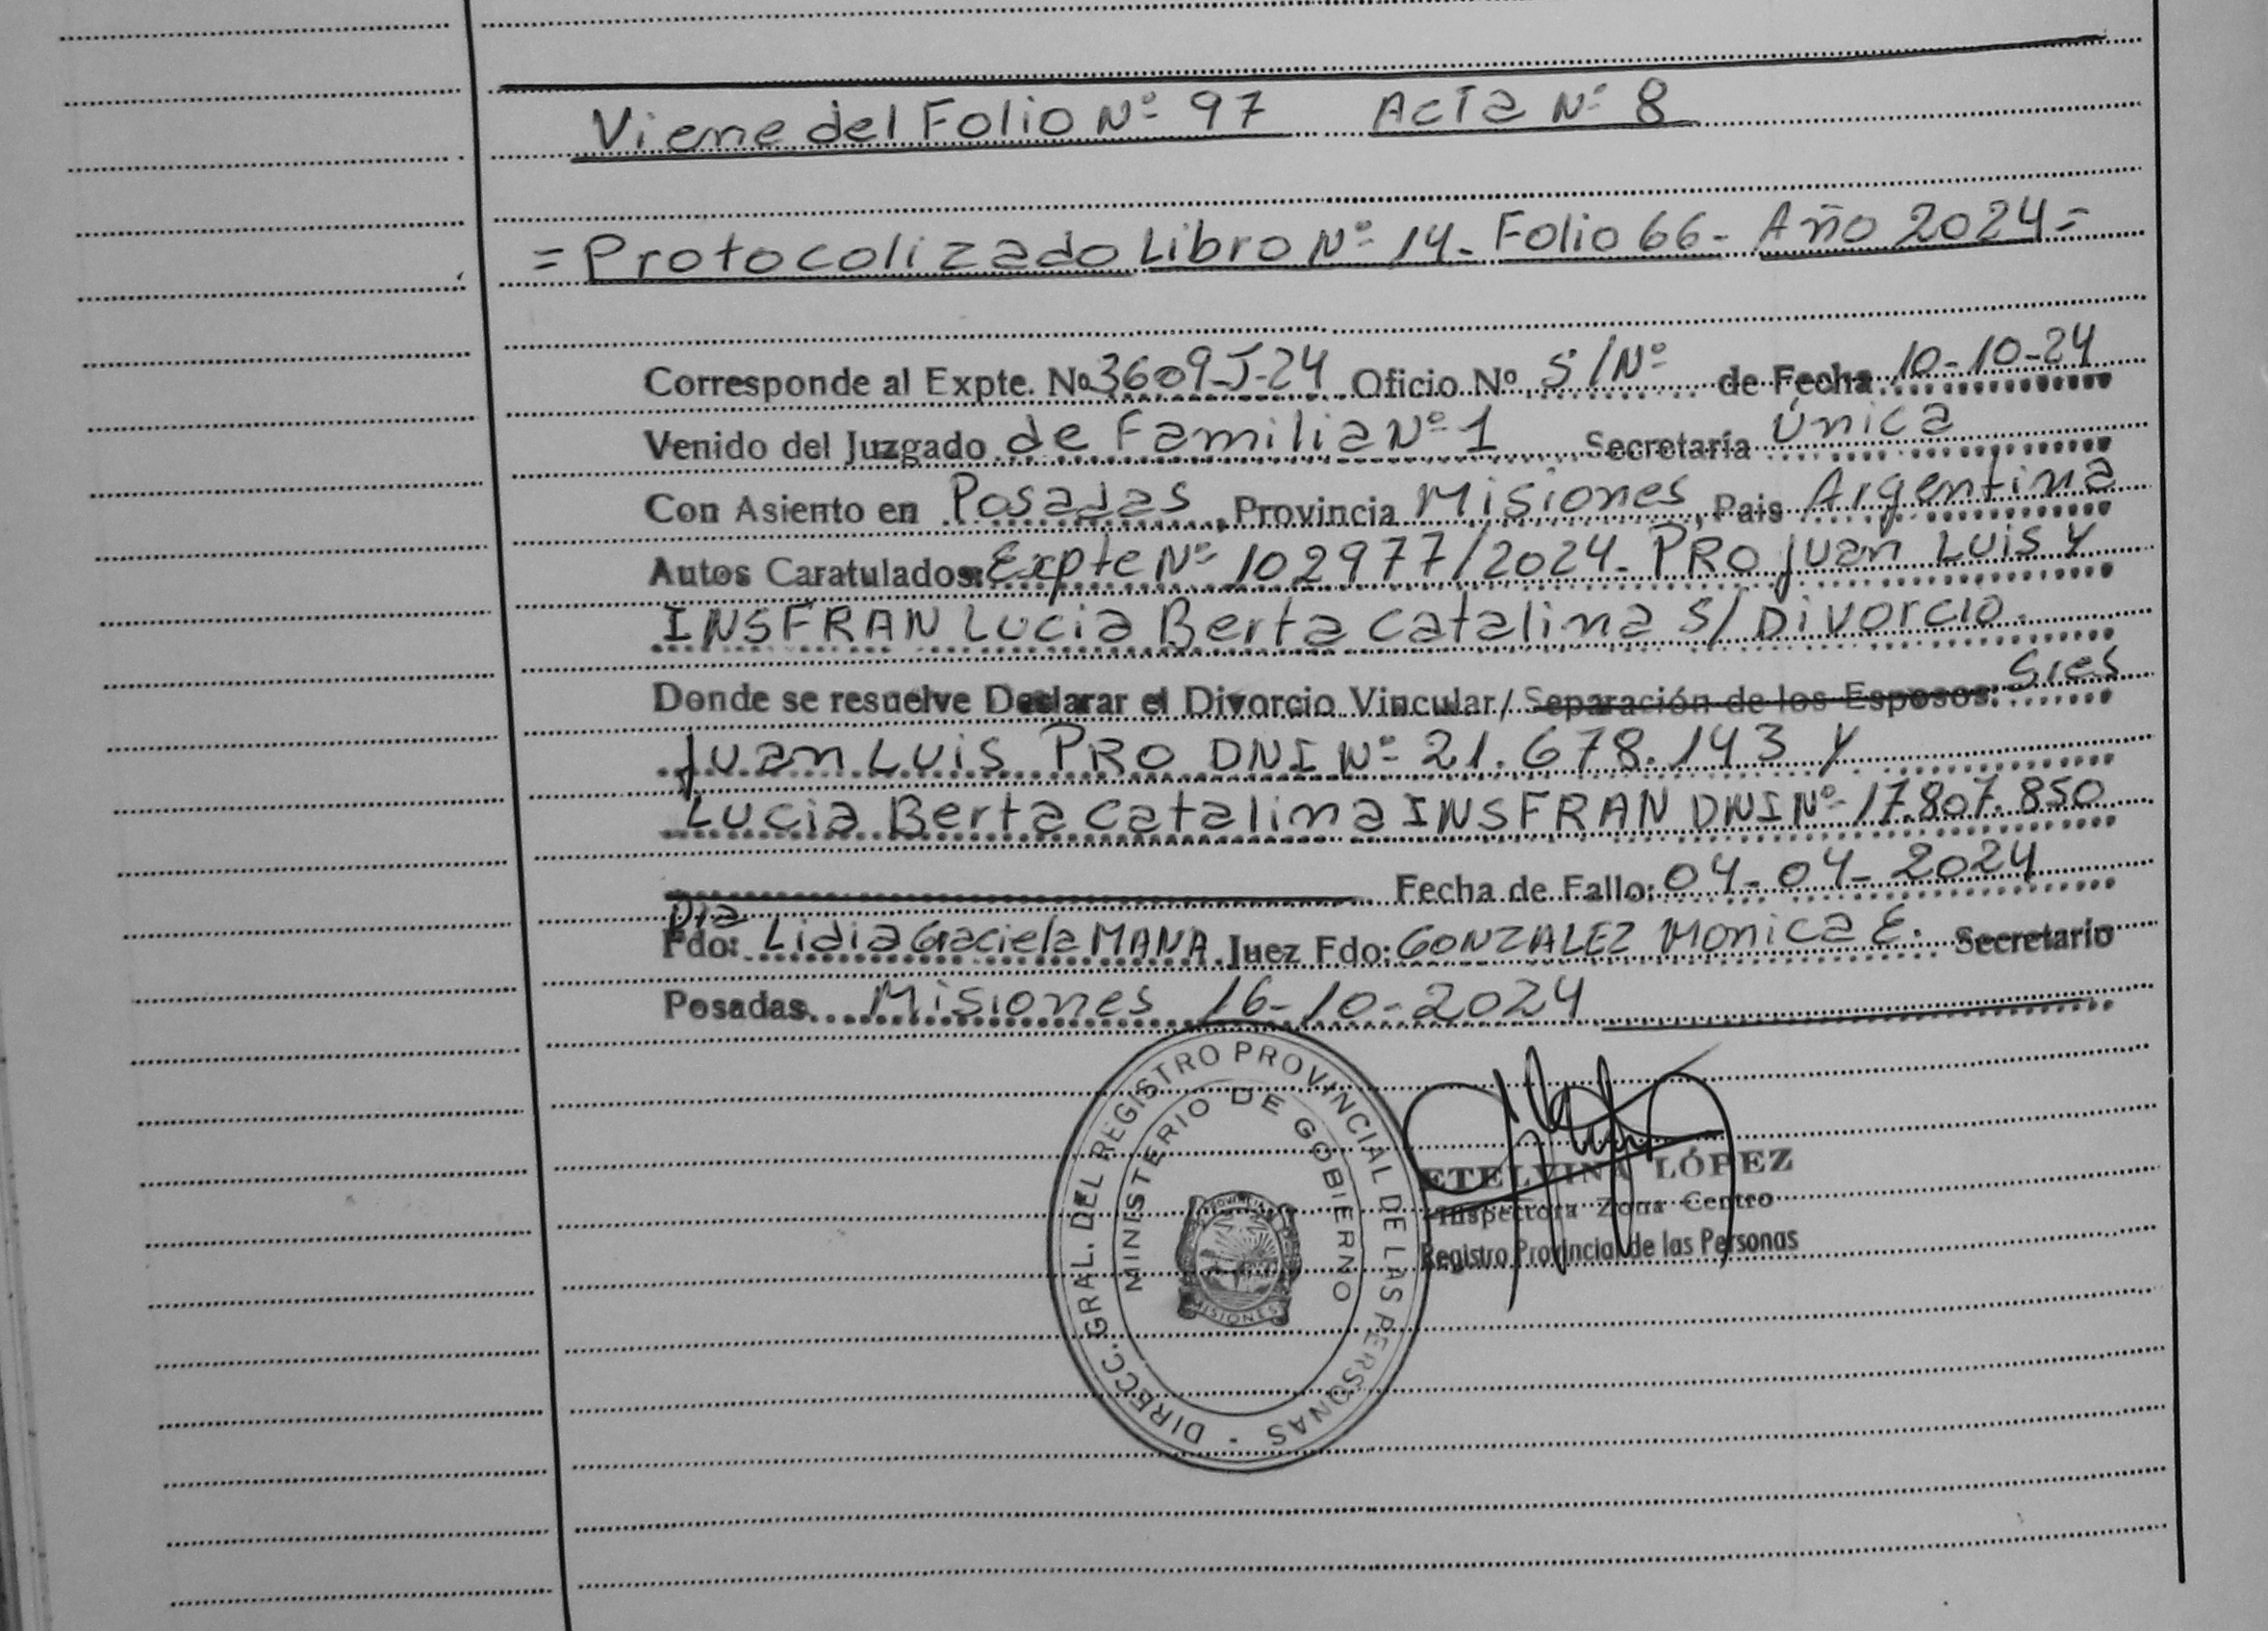 Viene del Folio Nº 97 Acta Nº 8
= Protocolizado Libro Nº 14 - Folio 66 - Año 2024 =
Corresponde al Expte. Nº 3609-J-24 Oficio Nº S/Nº de Fecha 10-10-24
Venido del Juzgado de Familia Nº 1 Secretaría Única
Con Asiento en Posadas, Provincia Misiones, Pais Argentina
Autos Caratulados: Expte Nº 102977/2024 - PRO Juan Luis y
INSFRAN Lucia Berta Catalina S/ Divorcio.
Donde se resuelve Declarar el Divorcio Vincular/ Separación de los Esposos: Sres
Juan Luis PRO DNI Nº 21.678.143 y
Lucia Berta Catalina INSFRAN DNI Nº 17.807.850
Fecha de Fallo: 04-04-2024
Dra
Fdo: Lidia Graciela MANA Juez Fdo: GONZALEZ Monica E. Secretario
Posadas Misiones 16-10-2024
DIRECC. GRAL. DEL REGISTRO PROVINCIAL DE LAS PERSONAS -
MINISTERIO DE GOBIERNO
PROVINCIA
MISIONES
ETELVINA LÓPEZ
Inspectora Zona Centro
Registro Provincial de las Personas